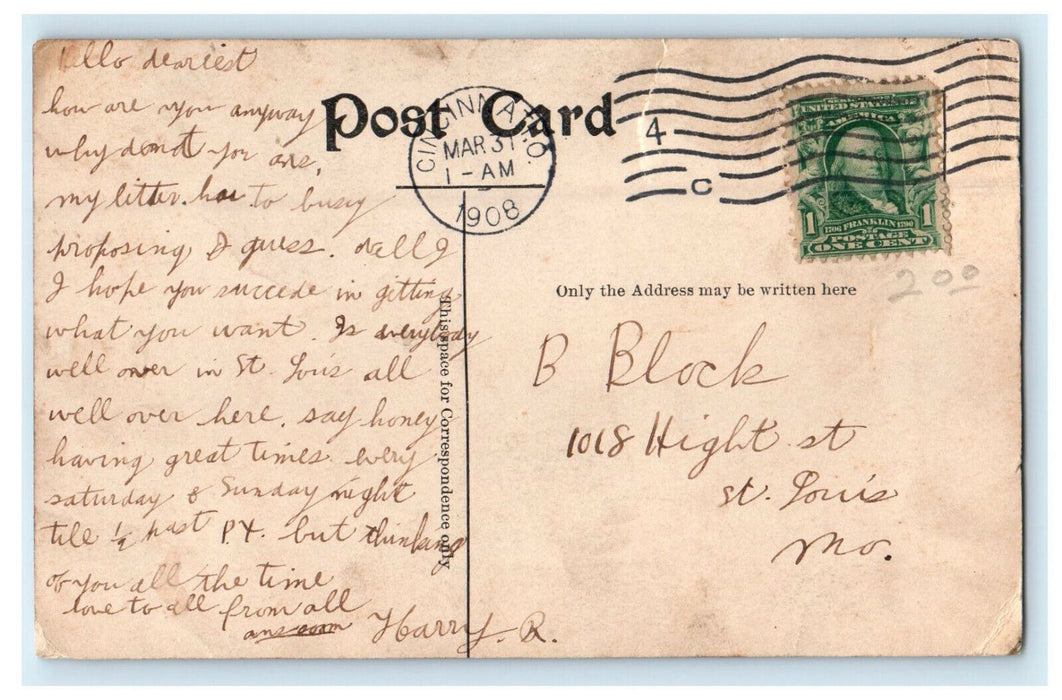 Hello deariest
how are you anyway
why dont you ans,
my litter. has to busy
proposing I guess. well I
I hope you succede in gitting
what you want. Is everybody
well over in St. Louis all
well over here. say honey
having great times every
saturday & Sunday night
till ½ past P.X. but thinking
of you all the time
love to all from all
ans soon
Harry. R.
Post Card
CINCINNATI, O.
MAR 31
1 - AM
1908
4
C
SERIES 1902
UNITED STATES OF
AMERICA
1706 FRANKLIN 1790
1 1
POSTAGE
ONE CENT
2 00
This space for Correspondence only
Only the Address may be written here
B Block
1018 Hight st
st. Louis
Mo.